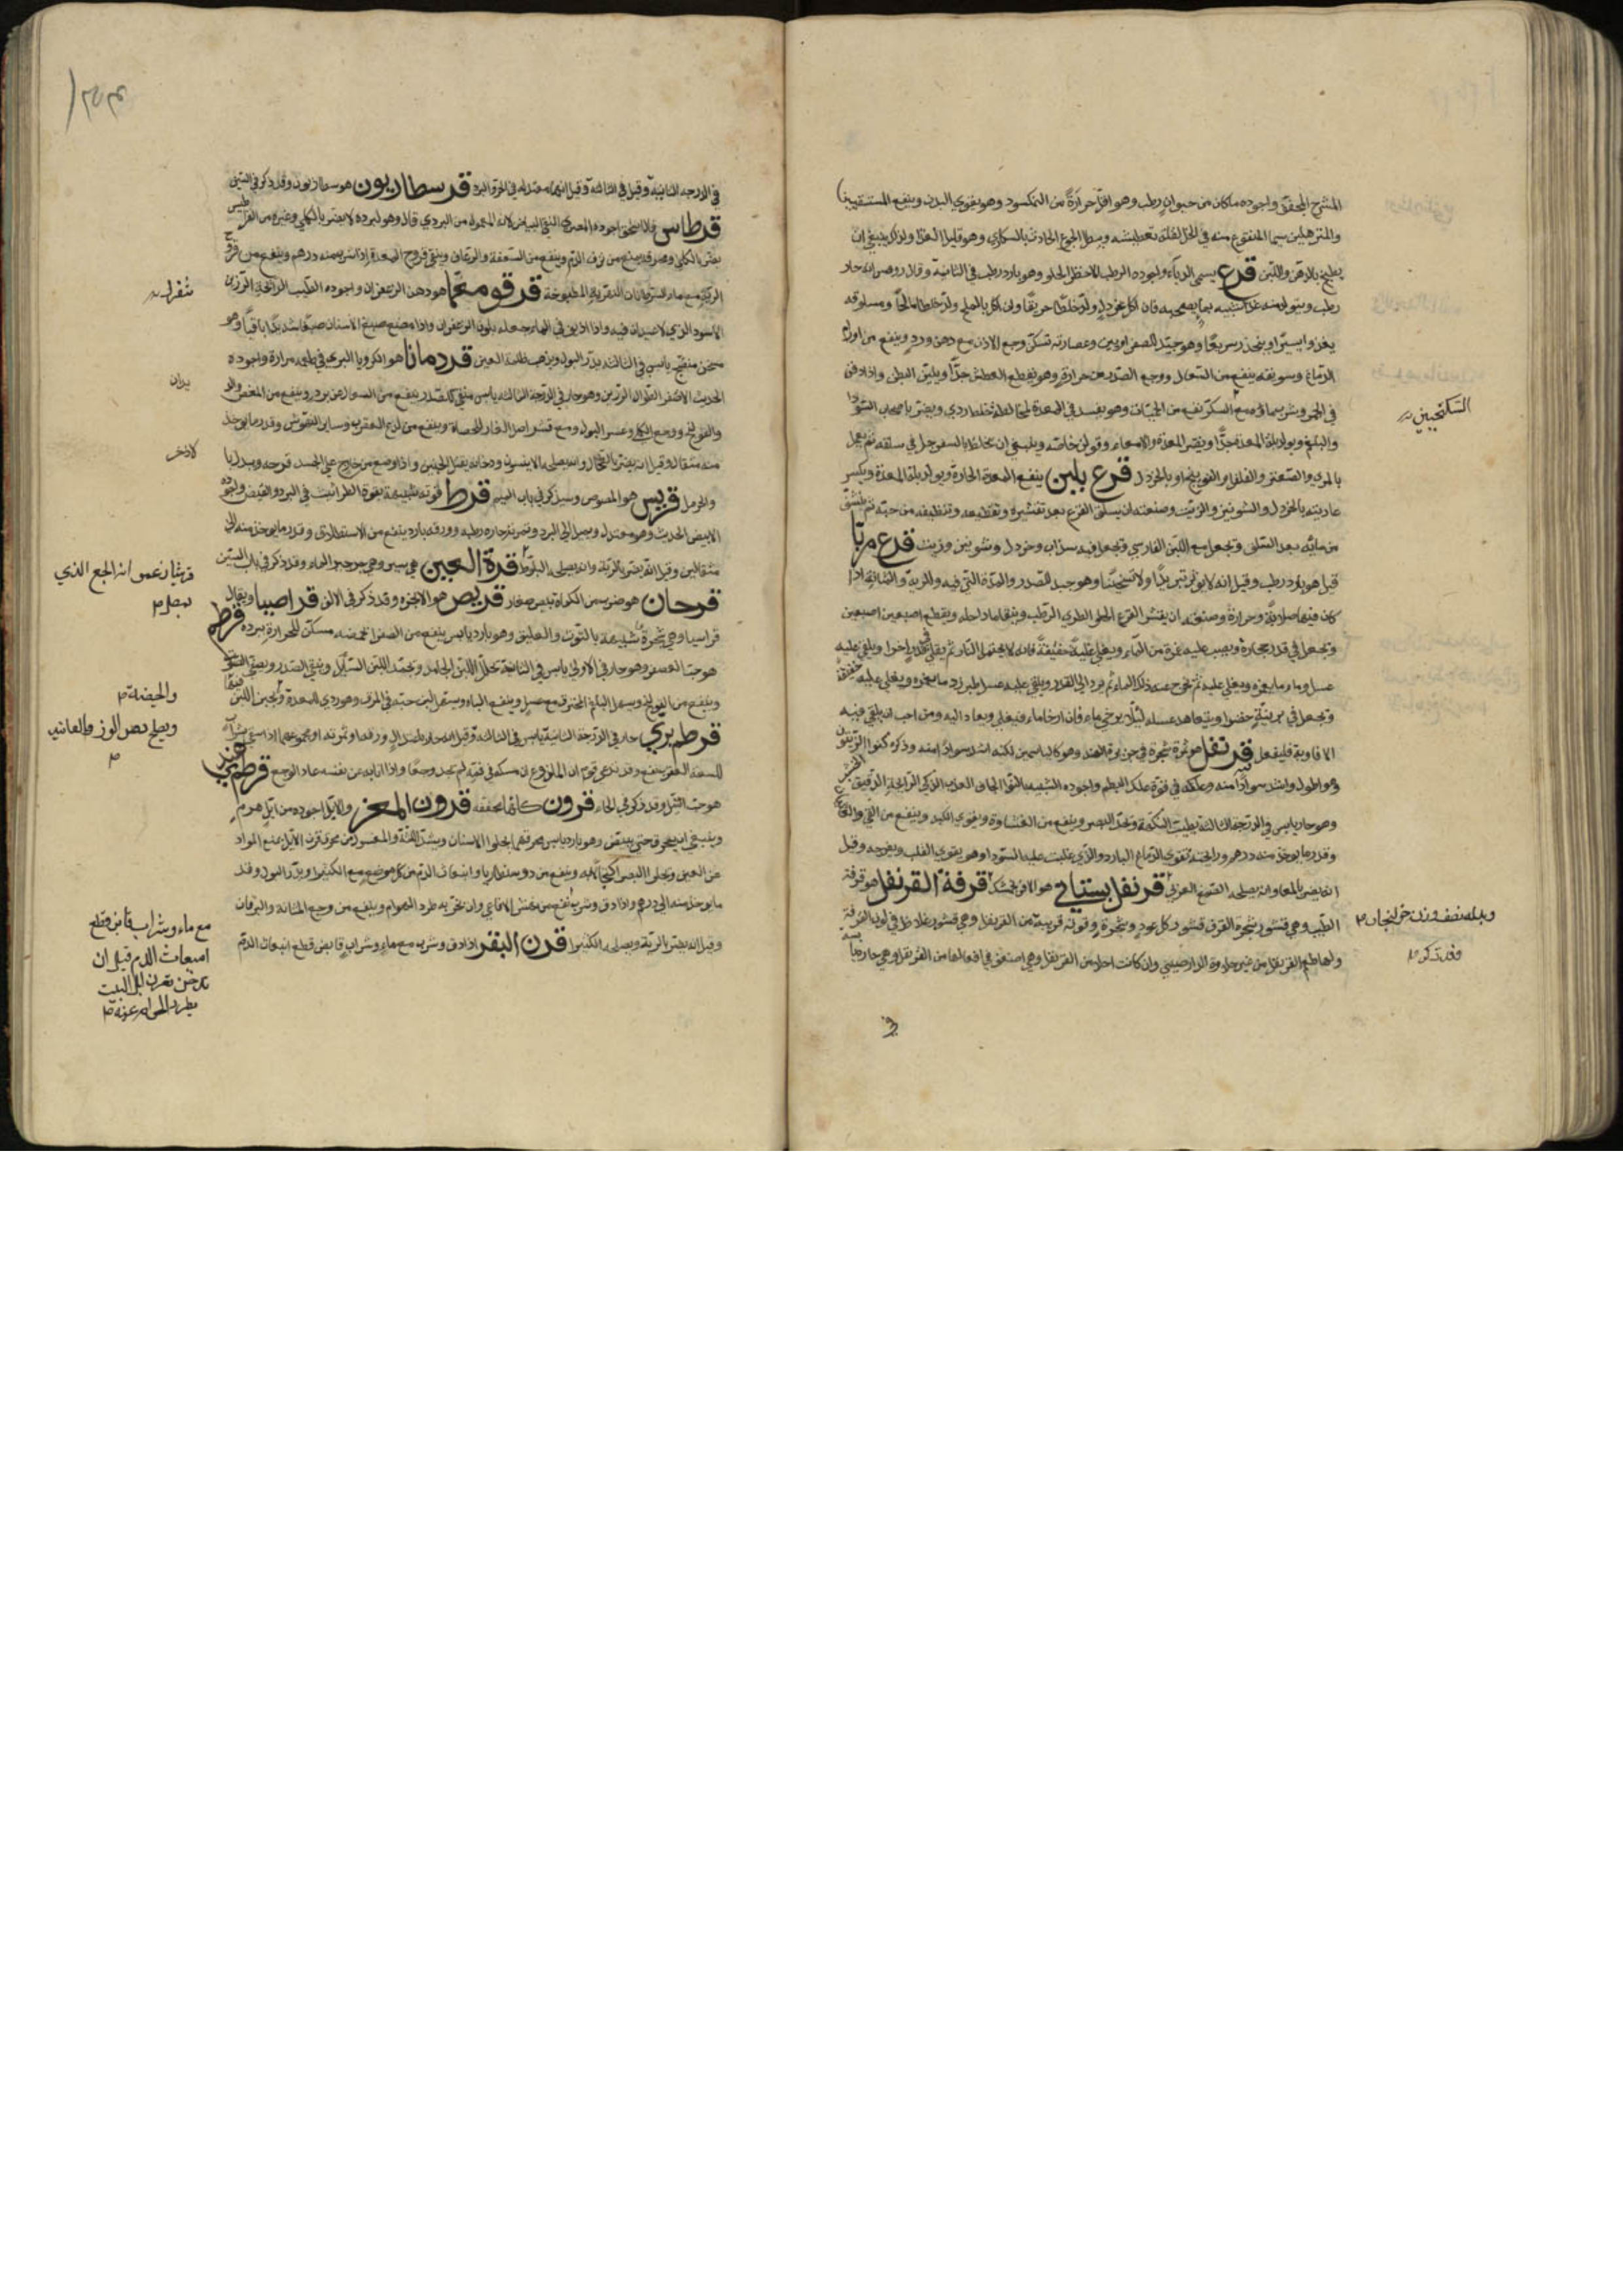 المشرح المجفف واجوده ما كان من حيوان رطب وهو اقل حرارة من النمكسود وهو يقوي البدن وينفع المستسقيين
والمترهلين سيما المنقوع منه في الخل لقلة تعطيشه ويبطل الجوع الحادث بالسكارى وهو قليل الغذا ولذلك ينبغي ان
يطبخ بالدهن واللبن قرع يسمى الدباء واجوده الرطب الاخضر الحلو وهو بارد رطب في الثانية وقال روفس انه حار
رطب ويتولد منه غذا شبيه بما يصحبه فان اكل بخردل ولد خلطا حريفا وان اكل بالملح ولد خلطا مالحا ومسلوقه
يغذو يسيرا وينحدر سريعا وهو جيد للصفراويين وعصارته تسكن وجع الاذن مع دهن ورد وينفع من اورام
الدماغ وسويقه ينفع من السعال ووجع الصدر من حرارة وهو يقطع العطش جدا ويلين البطن واذا دفن
في الجمر وشرب ماؤه مع السكر نفع من الحميات وهو يفسد في المعدة لمخالطة خلط ردي ويضر باصحاب السودا
السكنجبين
والبلغم ويولد بلة المعدة جدا ويضر المعدة والامعاء وقولن خاصة وينبغي ان يخلط بالسفرجل في سلقه ثم يعمل
بالمري والصعتر والفلفل او الفوتنج او بالخردل قرع بلبن ينفع المعدة الحارة ويولد بلة المعدة ويكسر
عاديته بالخردل والشونيز والزيت وصنعته ان يسلق القرع بعد تقشيره وتقطيعه وتنظيفه من حبه ثم ينشف
من مائه بعد السلق وتجعل مع اللبن الفارسي وتجعل فيه سذاب وخردل وشونيز وزيت قرع مربا
قيل هو بارد رطب وقيل انه لا يؤثر تبريدا ولا تسخينا وهو جيد للصدر والمدة التي فيه والرية والمثانة اذا
كان فيهما صلابة وحرارة وصنعته ان يقشر القرع الحلو الطري الرطب وينقا ما داخله ويقطع اصبعين اصبعين
وتجعل في قدر حجارة ويصب عليه غمرة من الماء ويغلى غلية خفيفة فانه لا يحتمل النار ثم ينقل في قدر اخرا ويلقى عليه
عسل وماء ما يغمره ويغلي عليه ثم يخرج عنه ذلك الماء ثم يرد الى القدر ويلقى عليه عسل طبرزد ما يغمره ويغلى غلية خفيفة
وتجعل في برنية خضرا ويتعاهد عسله لئلا يرخي ماء فان ارخا ماء فيغلى ويعاد اليه ومن احب ان يلقي فيه
الافاوية فليفعل قرنفل هو ثمرة شجرة في جزيرة الهند وهو كالياسمين لكنه اشد سوادا منه وذكره كنوا الزيتون
وهو اطول واشد سوادا منه وعلكه في قوة علك البطم واجوده الشبيه بالنوا الجاف العذب الذكي الرايحة الدقيق
وهو حار يابس في الدرجة الثالثة يطيب النكهة ويحد البصر وينفع من الغشاوة ويقوي الكبد وينفع من القي والغثيان
وقدر ما يوخذ منه درهم ورايحته تقوي الدماغ البارد والذي غلبت عليه السودا وهو يقوي القلب ويفرحه وقيل
انه يضر بالمعا وانه يصلحه الصمغ العربي قرنفل بستاني هو الافرنجمشك قرفة القرنفل هو قرفة
الطيب وهي قشور شجرة القرفة قشور كل عود وشجرة وقوته قريبة من القرنفل وهي قشور غلاظ في لون القرفة
ولها طعم القرنفل من غير حلاوة الدارصيني وان كانت احلى من القرنفل وهي اضعف في افعالها من القرنفل وهي حارة يابسة
وبدله نصف وزن خولنجان
وقد تذكر
في
في الدرجة الثانية وقيل في الثالثة وقيل انها معتدلة في الحر والبرد قرسطاريون هو سطاريون وقد ذكر في السين
قرطاس اجوده المصري النقي البياض لانه المعمول من البردي قال وهو لبرده لا يضر بالكلى وغيره من القراطيس
يضر بالكلى ومحرقه يمنع من نزف الدم وينفع من السعفة والرعاف وينقي قروح المعدة اذا شرب منه درهم وينفع من قروح
الرية مع ماء السرطانات النهرية المطبوخة قرقومعما هو دهن الزعفران واجوده الطيب الرائحة الرزين
الاسود الذي لا عيدان فيه واذا اذيب في الماء جعله بلون الزعفران واذا مضغ صبغ الاسنان صبغا شديدا باقيا وهو
مسخن منضج يابس في الثالثة يدر البول ويذهب ظلمة العين قردمانا هو الكرويا البري في طعمه مرارة واجوده
الحديث الاصفر الطوال الرزين وهو حار في الدرجة الثالثة يابس منقي كالصدر ينفع من السعال عن برد وينفع من المغص والرياح
والقولنج ووجع الكلى وعسر البول ومع قشر اصل الغار للحصاة وينفع من لذع العقرب وساير النهوش وقدر ما يوخذ
منه مثقال وقيل انه يضر بالطحال وانه يصلحه الانيسون ودخانه يقتل الجنين واذا وضع من خارج على الجسد قرحه وبدله
والحرمل قريس هو المصوص وسيذكر في باب الميم قرط قوته شبيهة بقوة الطراثيث في البرد والقبض واجوده
الابيض الحديث وهو معتدل ويميل الى البرد وتمرته حارة رطبة وورقه بارد ينفع من الاستطلاق وقدر ما يوخذ منه الى
مثقالين وقيل انه يضر بالرية وانه يصلحه البلوط قرة العين هي سير وهي جرجير الماء وقد ذكر في باب السين
قرحان هو ضرب من الكماة بيض صغار قريص هو الانجره وقد ذكر في الالف قراصيا ويقال
قراسيا وهي شجرة شبيهة بالتوت والعليق وهو بارد يابس ينفع من الصفرا مسكن للحرارة ببرده قرطم
هو حب العصفر وهو حار في الاولى يابس في الثانية يحلل اللبن الجامد ويجمد اللبن السائل وينقي الصدر ويصفي الصوت
وينفع من القولنج ويسهل البلغم المحترق مع عسل وينفع الباه ويستعمل لبن حبه في المرق وهو ردي للمعدة ويجبن اللبن
قرطم بري حار في الدرجة الثانية يابس في الثالثة وقيل انه حار باعتدال ورقه وثمرته
للسعة العقرب نفع وقد يدعي قوم ان الملذوع ان مسكه في فيه لم يجد وجعا واذا ابانه عن نفسه عاد الوجع قرطم هندي
هو حب النيل وقد ذكر في الحاء قرون كلها مجففة قرون المعز والايل اجوده من ايل هرم
وينبغي ان يحرق حتى يبيض وهو بارد يابس محرقهما يجلوا الاسنان ويشد اللثة والمغسول من محرق قرن الايل يمنع المواد
عن العين وتجلوا البصر وينفع من دوسنطاريا وانبعاث الدم من كل موضع مع الكثيرا ويدر البول وقدر
ما يوخذ منه الى درهم واذا دق وشرب نفع من نهش الافاعي وان بخر به طرد الهوام وينفع من وجع المثانة واليرقان
وقيل انه يضر بالرية ويصلحه الكثيرا قرن البقر اذا دق وشرب مع ماء وشراب قابض قطع انبعاث الدم
والحيضة
مع ماء وشراب قابض وقطع
انبعاث الدم قيل ان
تدخن بقرن ايل البيت
يطرد الهوام عنه